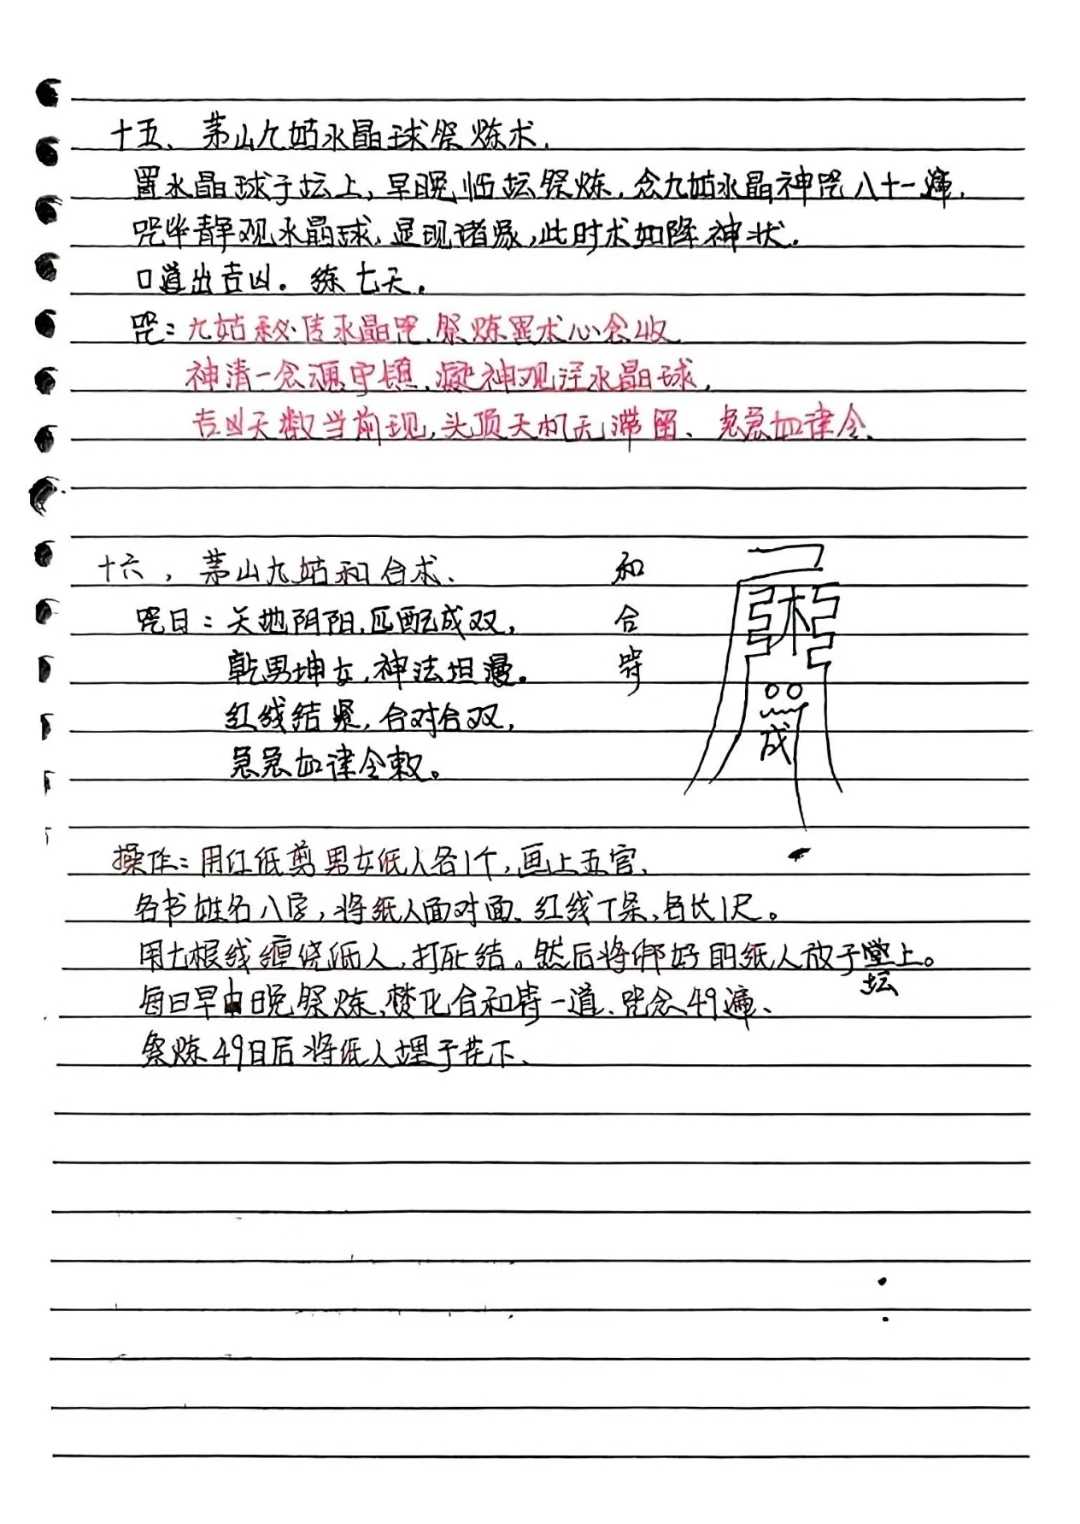 十五、茅山九姑水晶球祭炼术.
置水晶球于坛上,早晚临坛祭炼,念九姑水晶神咒八十一遍,
咒毕静观水晶球,显现诸象,此时术如降神状.
口道出吉凶。练七天.
咒:九姑秘传水晶咒.祭炼置术心念收
神清一念通宇镇.凝神观注水晶球,
吉凶天数当前现,头顶天机无滞留、急急如律令.
十六,茅山九姑和合术.
咒曰:天地阴阳,匹配成双,
乾男坤女,神法坦漫。
红线结紧,合对合双,
急急如律令敕。
和合符
成
操作:用红纸剪男女纸人各1个,画上五官.
各书姓名八字,将纸人面对面.红线7条,各长1尺。
用七根线缠绕纸人,打死结。然后将绑好的纸人放于堂上。
坛
每日早中晚祭炼,焚化合和符一道.咒念49遍、
祭炼49日后将纸人埋于花下、